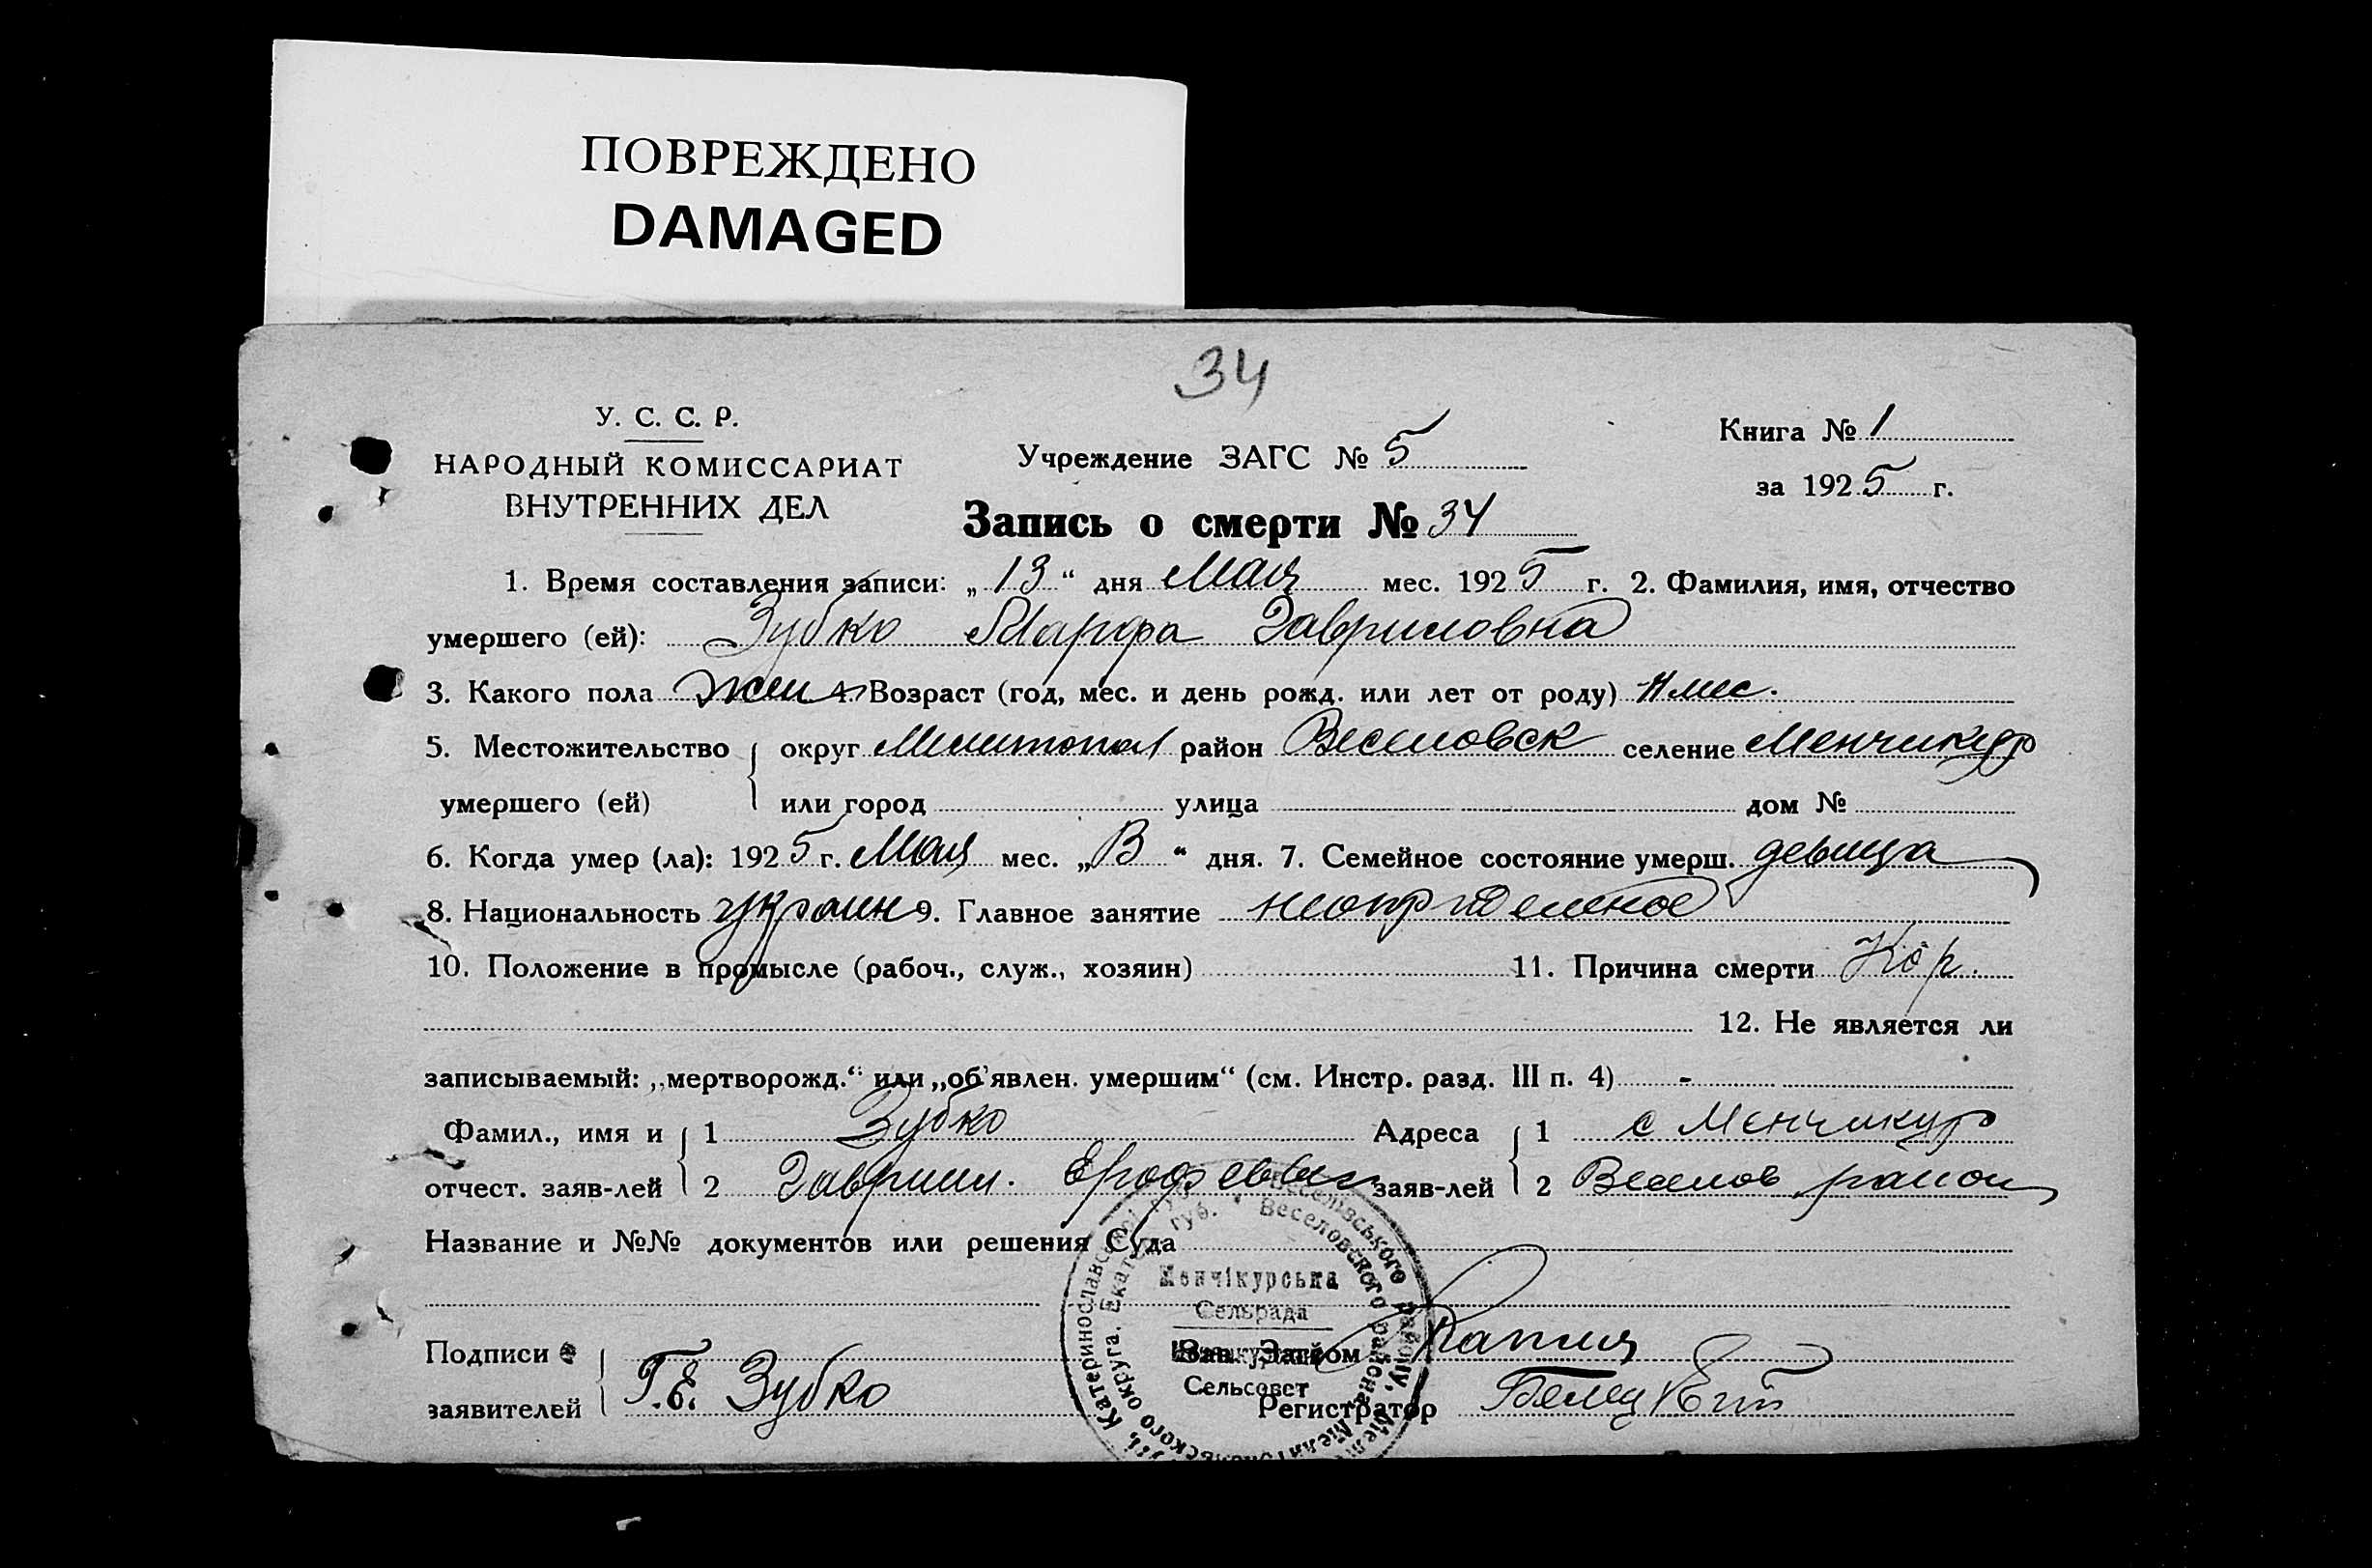 ПОВРЕЖДЕНО
DAMAGED
34
У. С. С. Р.
НАРОДНЫЙ КОМИССАРИАТ
ВНУТРЕННИХ ДЕЛ
Учреждение ЗАГС № 5
Книга № 1
за 1925 г.
Запись о смерти № 34
1. Время составления записи: „13“ дня Мая мес. 1925 г. 2. Фамилия, имя, отчество
умершего (ей): Зубко Марфа Гавриловна
3. Какого пола жен 4. Возраст (год, мес. и день рожд. или лет от роду) мес.
5. Местожительство округ Мелитопол район Веселовск селение Менчикур
умершего (ей) или город улица дом №
6. Когда умер (ла): 1925 г. Мая мес. „ “ дня. 7. Семейное состояние умерш. девица
8. Национальность украин 9. Главное занятие неопределеное
10. Положение в промысле (рабоч., служ., хозяин) 11. Причина смерти Кор.
12. Не является ли
записываемый: „мертворожд.“ или „об'явлен. умершим“ (см. Инстр. разд. III п. 4) -
Фамил., имя и 1 Зубко Адреса 1 с Менчикур
отчест. заяв-лей 2 Гавриил. Ерофеевич заяв-лей 2 Веселов район
Название и №№ документов или решения Суда
Веселівського району,
Веселовского района,
Катеринославської
округа. Екат. губ.
Менчікурська
Сельрада
Сельсовет
Подписи Зав. Загсом
заявителей Г. Е. Зубко Регистратор